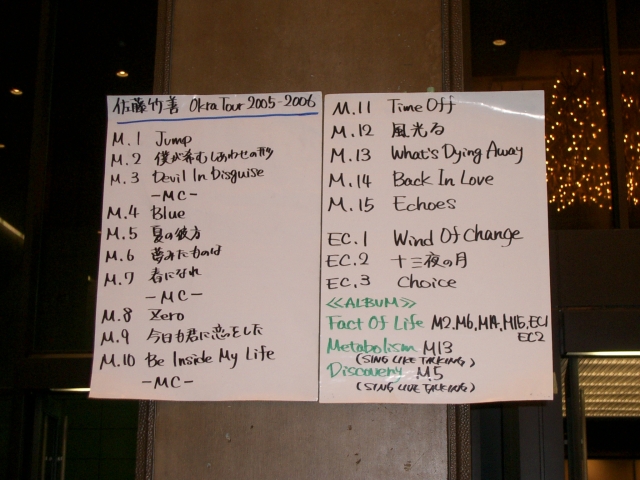 佐藤竹善 Okra Tour 2005-2006
M.1 Jump
M.2 僕が希むしあわせの形
M.3 Devil In Disguise
-MC-
M.4 Blue
M.5 夏の彼方
M.6 夢みたものは
M.7 春になれ
-MC-
M.8 Zero
M.9 今日も君に恋をした
M.10 Be Inside My Life
-MC-
M.11 Time Off
M.12 風光る
M.13 What's Dying Away
M.14 Back In Love
M.15 Echoes
EC.1 Wind Of Change
EC.2 十三夜の月
EC.3 Choice
≪ALBUM≫
Fact Of Life M2,M6,M14,M15,EC1
EC2
Metabolism M13
(SING LIKE TALKING)
Discovery M.5
(SING LIVE TALKING)